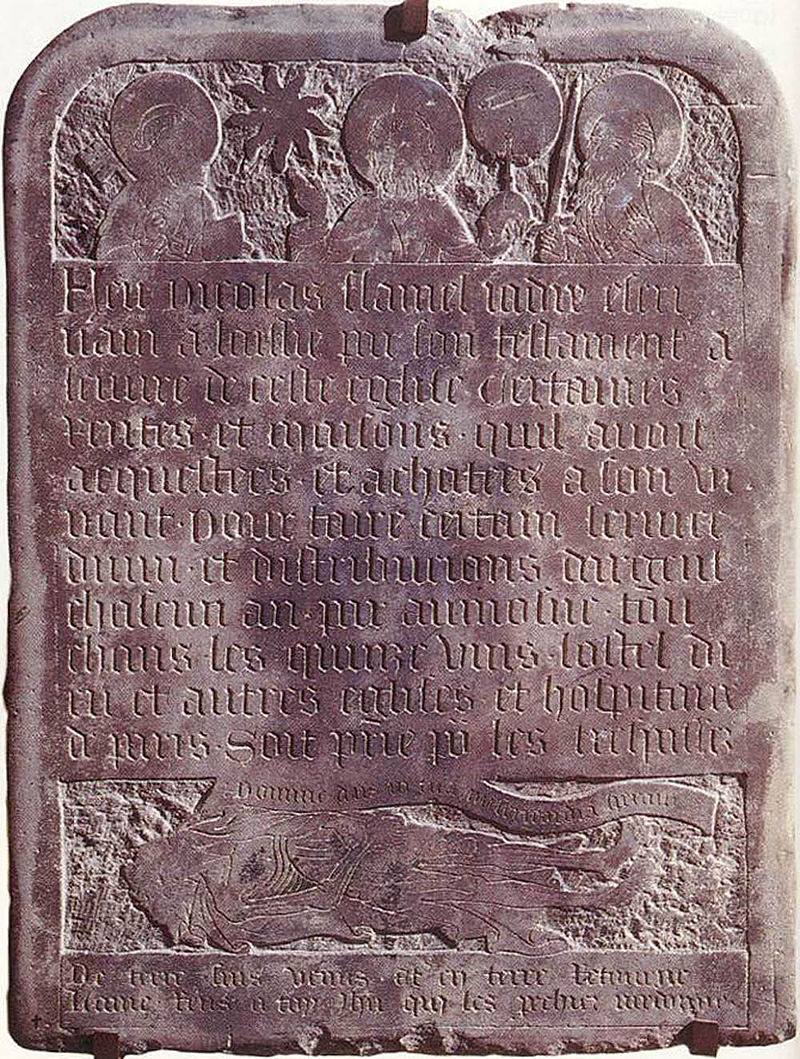 Feu nicolas flamel iadis escri
uain a laissie par son testament a
leuure de ceste eglise certaines
rentes et maisons quil auoit
acquestees et achatees a son vi
uant pour faire certain seruice
diuin et distribucions dargent
chascun an par aumosne tou
chans les quinze vins lostel di
eu et autres eglises et hospitaux
de paris Soit prie po les trespassez
Domine deus in tua misericordia speraui
De terre suis venus et en terre retourne
lame rens a toy ihu qui les pechiez pardonne